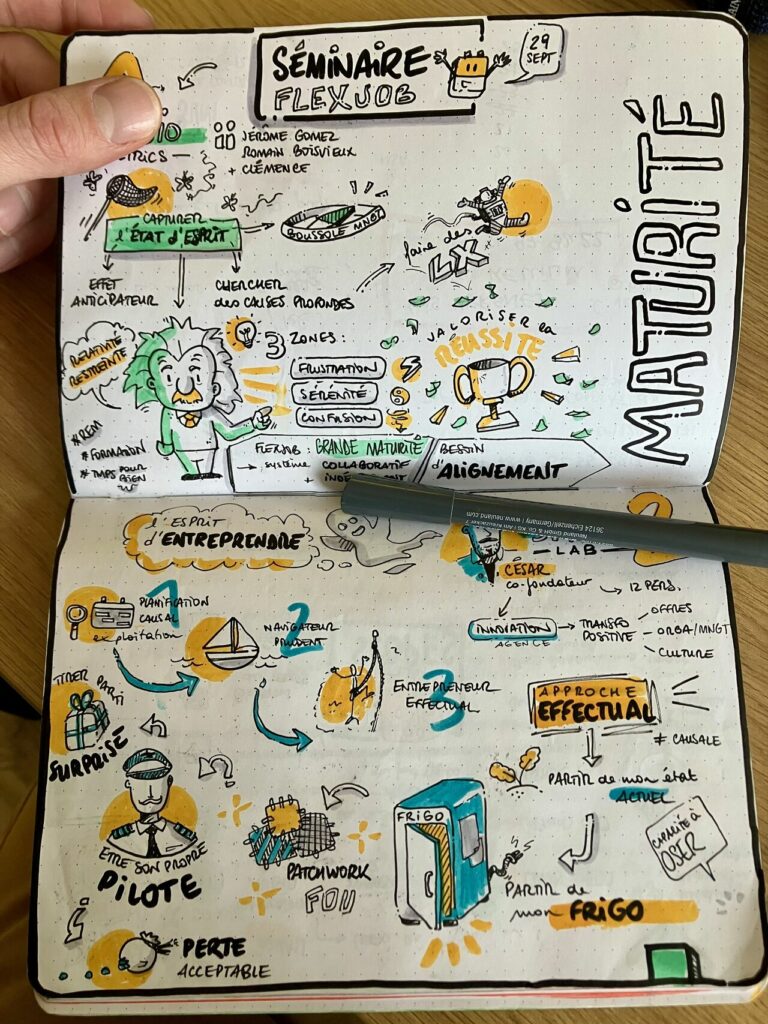 SÉMINAIRE
FLEXJOB
29
SEPT
MATURITÉ
JÉRÔME GOMEZ
ROMAIN BOISVIEUX
+ CLÉMENCE
CAPTURER
l'ÉTAT d'ESPRIT
BOUSSOLE MNGT
faire des
LX
EFFET
ANTICIPATEUR
CHERCHER
des CAUSES PROFONDES
RELATIVITÉ
RESTREINTE
3 ZONES :
FRUSTRATION
SÉRÉNITÉ
CONFUSION
VALORISER la
RÉUSSITE
# REM
# FORMATION
# TMPS POUR
BIEN
FLEXJOB : GRANDE MATURITÉ
→ système COLLABORATIF
+
BESOIN
d'ALIGNEMENT
l'ESPRIT
d'ENTREPRENDRE
2
LAB
CÉSAR
co-fondateur → 12 PERS.
INNOVATION → TRANSFO
AGENCE
POSITIVE
OFFRES
ORGA/MNGT
CULTURE
1
PLANIFICATION
CAUSAL
exploitation
2
NAVIGATEUR
PRUDENT
3
ENTREPRENEUR
EFFECTUAL
APPROCHE
EFFECTUAL
≠ CAUSALE
PARTIR de mon état
ACTUEL
CAPACITÉ À
OSER
PARTIR de
mon FRIGO
FRIGO
PATCHWORK
FOU
TIRER PARTI
SURPRISE
ÊTRE SON PROPRE
PILOTE
PERTE
ACCEPTABLE
36124 Eichenzell/Germany
Neuland GmbH & Co. KG
www.neuland.com